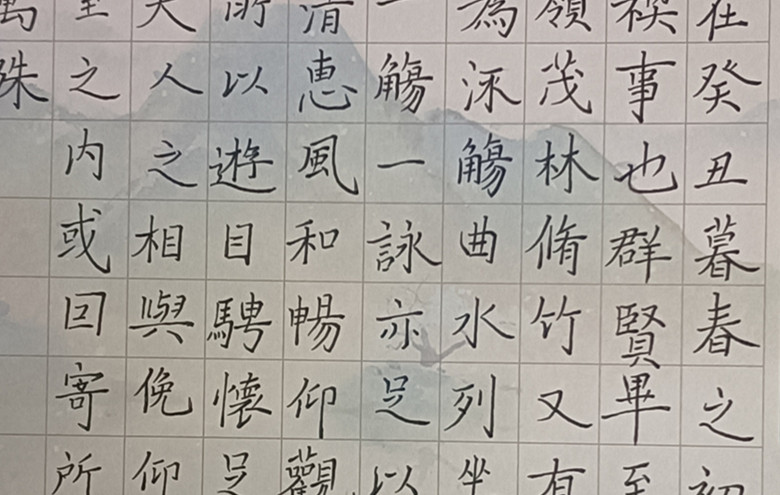 在癸丑暮春之初
禊事也群賢畢至
領茂林脩竹又有
為流觴曲水列坐
一觴一詠亦足以
清恵風和暢仰觀
所以遊目騁懷足
夫人之相與俛仰
室之内或回寄所
萬殊